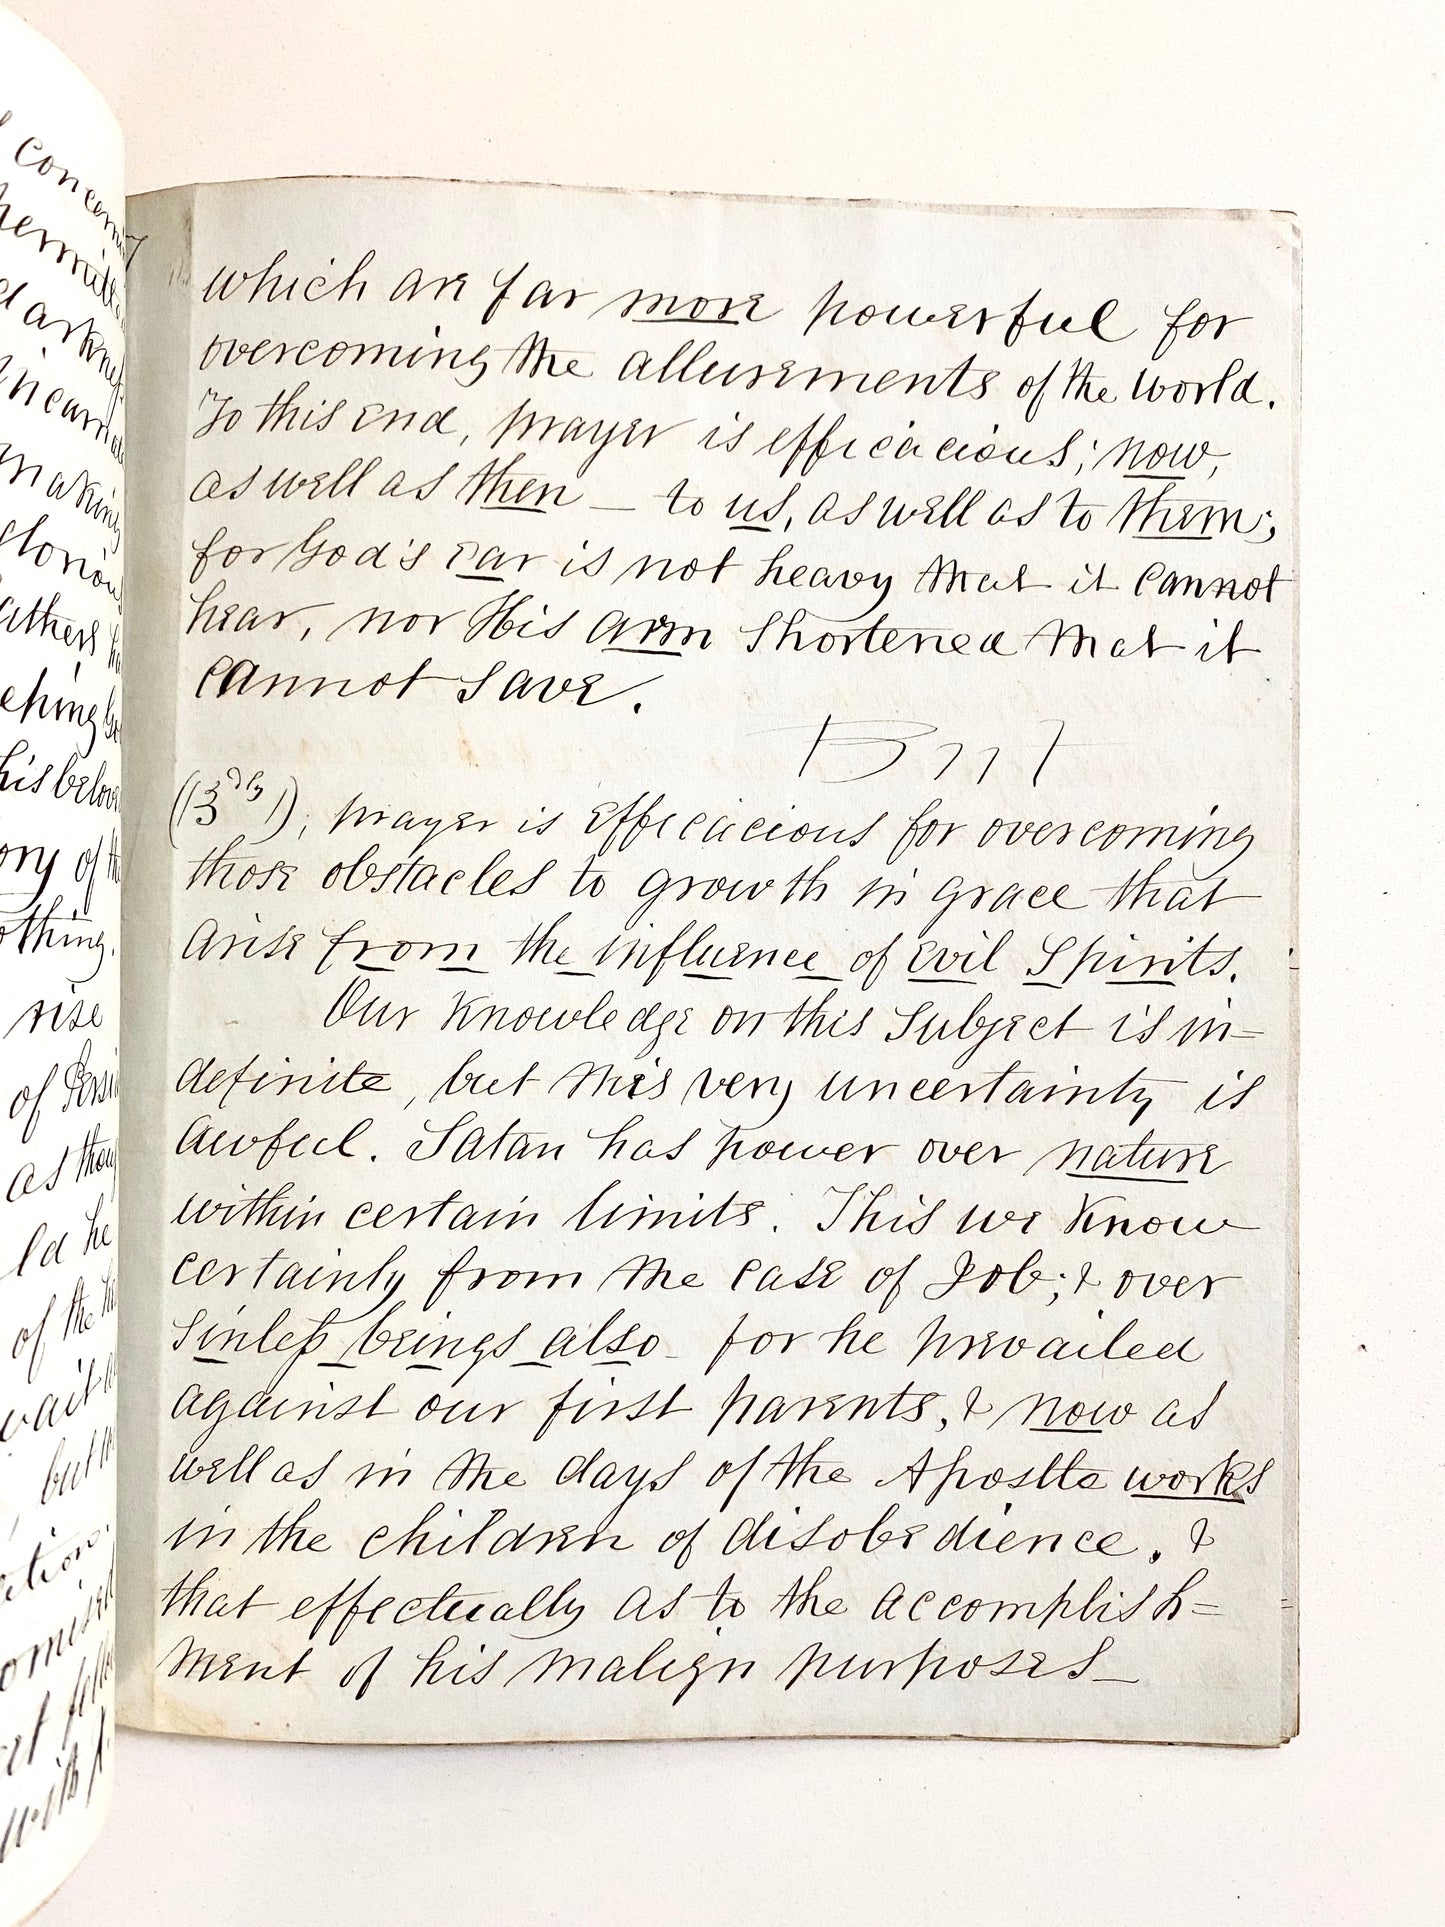 which are far more powerful for
overcoming the allurements of the world.
To this end, prayer is efficacious; now,
as well as then — to us, as well as to them;
for God's ear is not heavy that it cannot
hear, nor His arm shortened that it
cannot save.
(13dly), prayer is efficacious for overcoming
those obstacles to growth in grace that
arise from the influence of evil Spirits.
Our knowledge on this subject is in=
definite, but this very uncertainty is
awful. Satan has power over nature
within certain limits. This we know
certainly from the case of Job; & over
sinless beings also - for he prevailed
against our first parents, & now as
well as in the days of the Apostle works
in the children of disobedience. &
that effectually as to the accomplish=
ment of his malign purposes—
concern
darkness
making
glorious
his belov
ory of the
othing.
rise
of Persi
as thou
ld he
of the